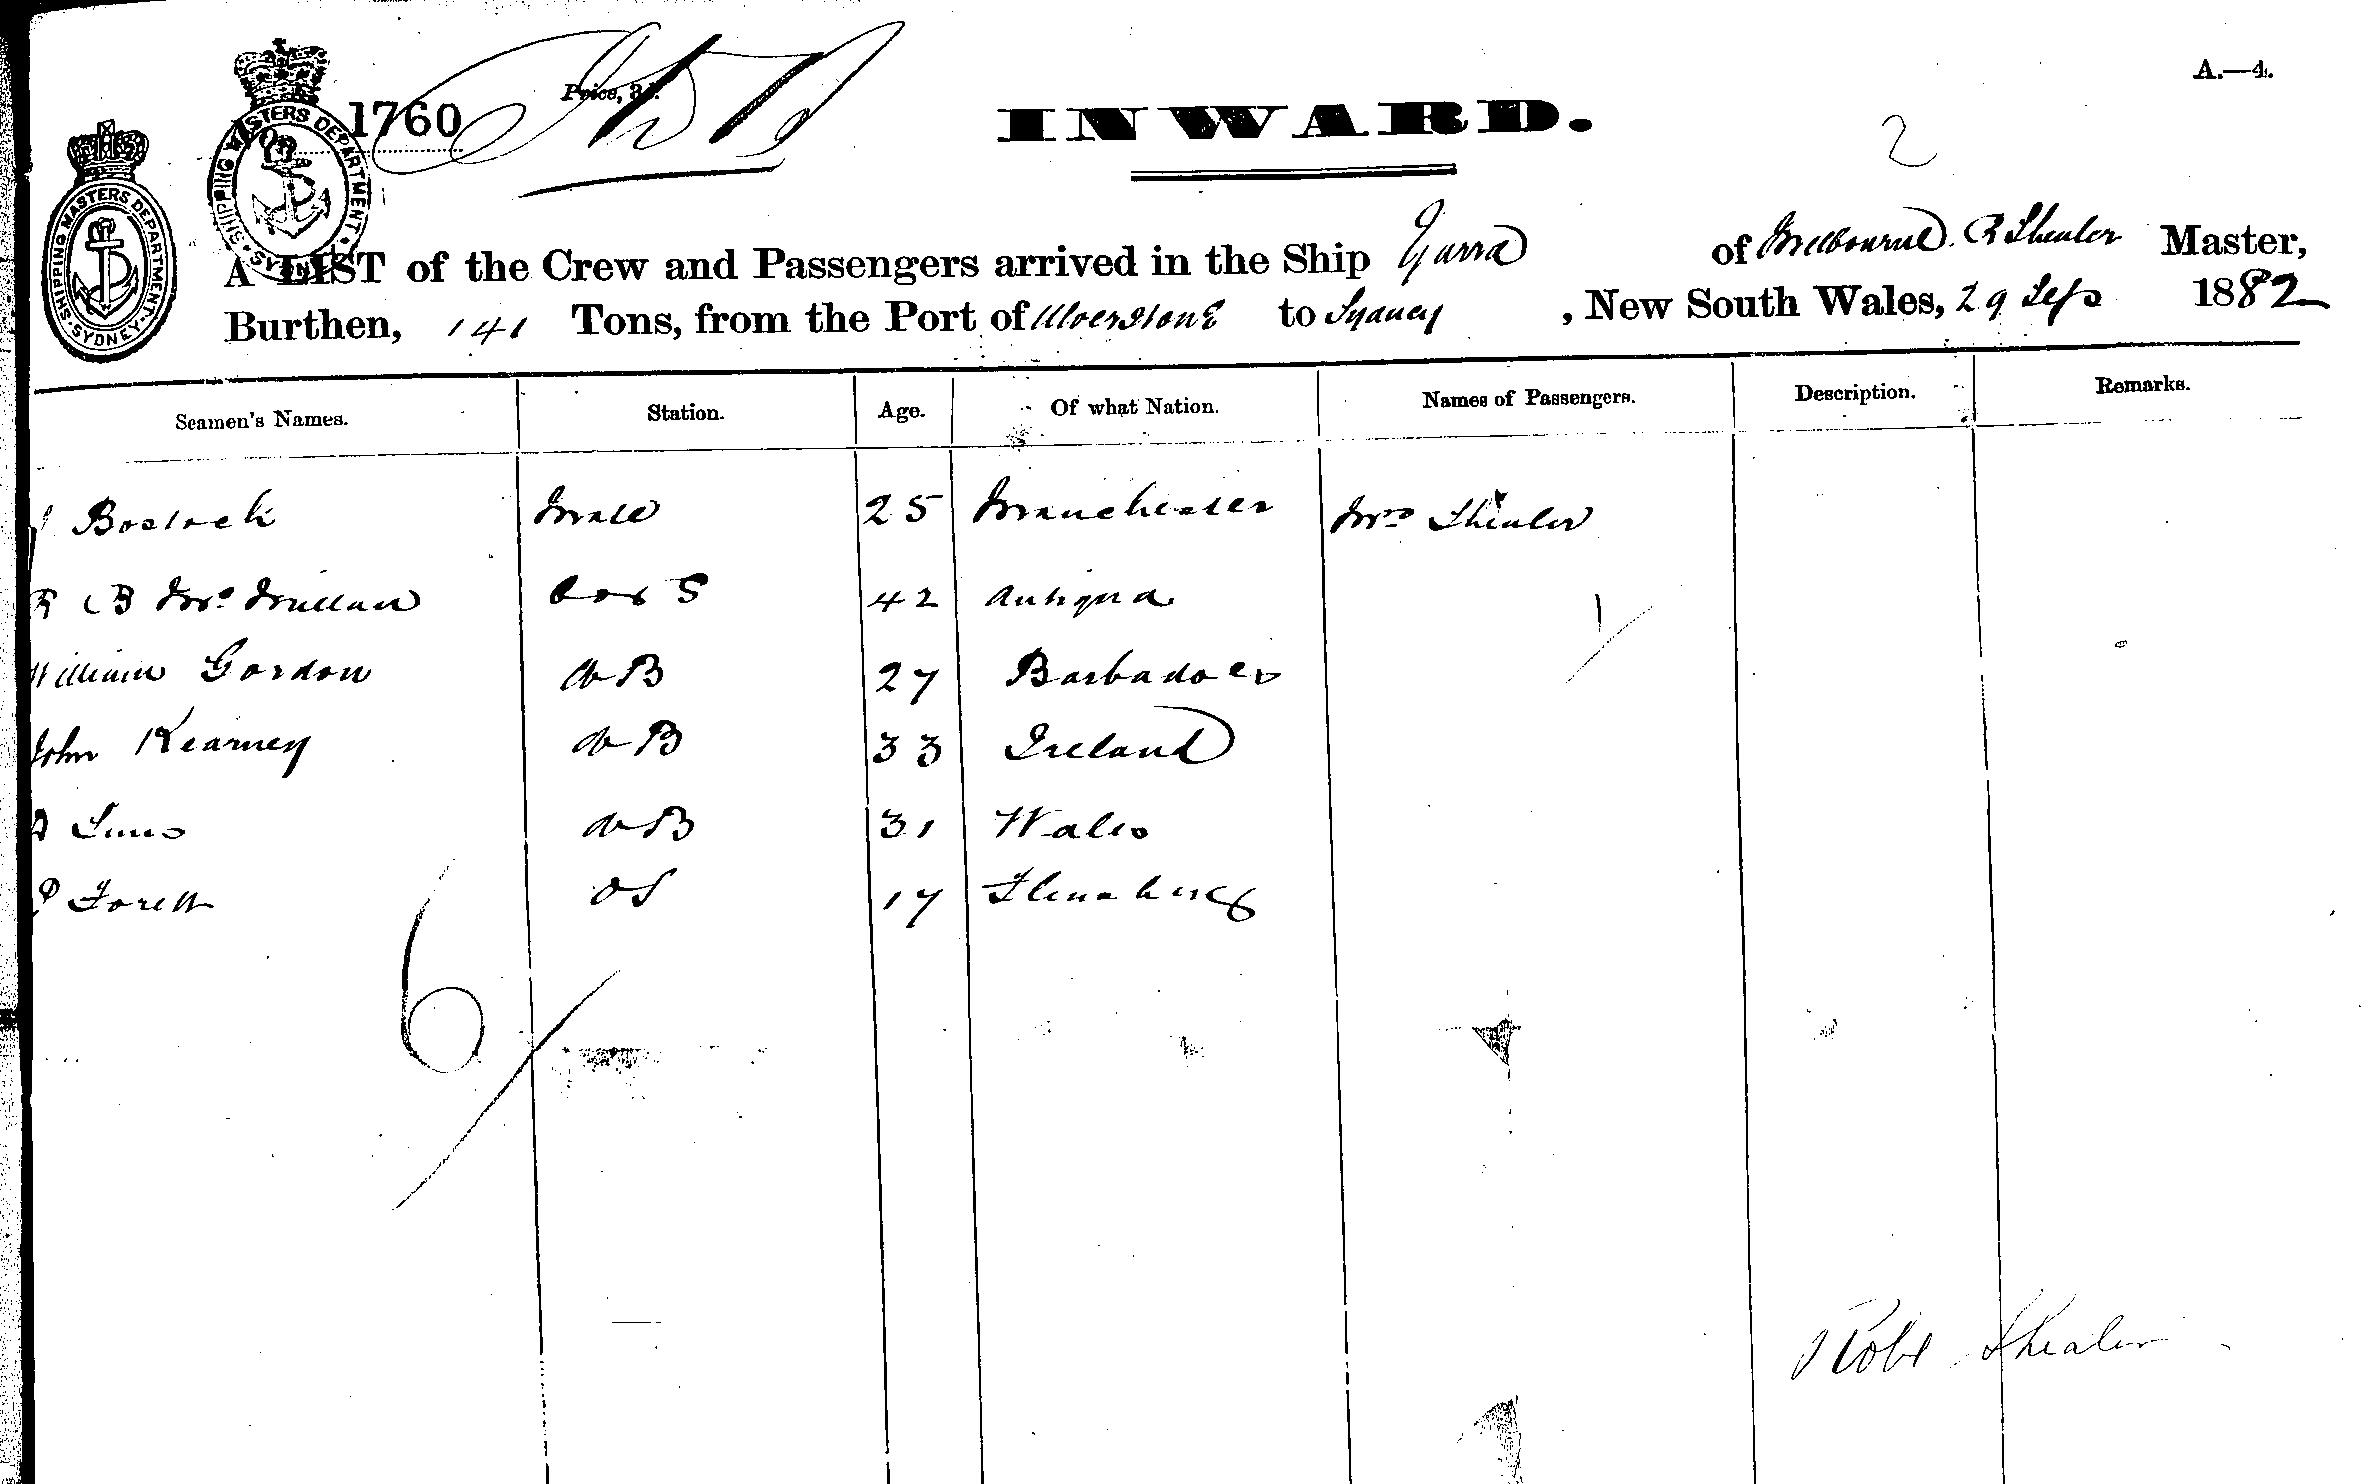 A.—4.
1760
Price, 3d.
INWARD.
2
SHIPPING MASTERS DEPARTMENT SYDNEY
SHIPPING MASTERS DEPARTMENT SYDNEY
A LIST of the Crew and Passengers arrived in the Ship Yarra of Melbourne. R Shealer Master,
Burthen, 141 Tons, from the Port of Ulverstone to Sydney, New South Wales, 29 Sep 1882
Seamen's Names. Station. Age. Of what Nation. Names of Passengers. Description. Remarks.
J Bostock Mate 25 Manchester Mrs Shealer
R B Mc Mullan Cook S 42 Antigua
William Gordon AB 27 Barbadoes 1
John Kearney AB 33 Ireland
AB 31 Wales
P OS 17 Flensburg
6
Robt Shealer